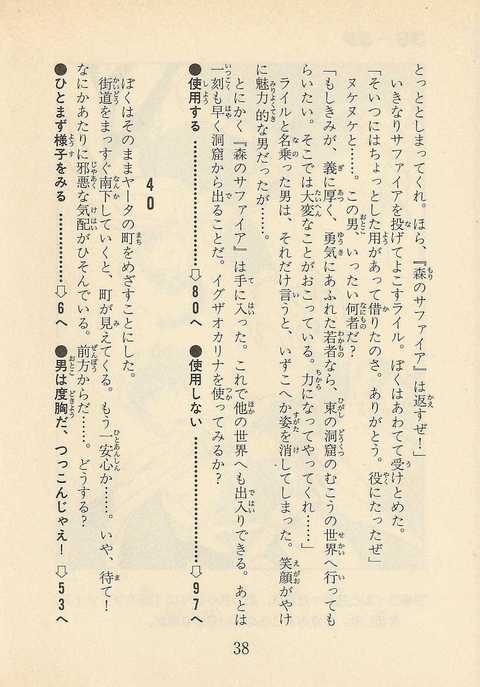 とっととしまってくれ。ほら、『森のサファイア』は返すぜ！」
いきなりサファイアを投げてよこすライル。ぼくはあわてて受けとめた。
「そいつにはちょっとした用があって借りたのさ。ありがとう。役にたったぜ」
ヌケヌケと……。この男、いったい何者だ？
「もしきみが、義に厚く、勇気にあふれた若者なら、東の洞窟のむこうの世界へ行っても
らいたい。そこでは大変なことがおこっている。力になってやってくれ……」
ライルと名乗った男は、それだけ言うと、いずこへか姿を消してしまった。笑顔がやけ
に魅力的な男だったが……。
とにかく『森のサファイア』は手に入った。これで他の世界へも出入りできる。あとは
一刻も早く洞窟から出ることだ。イグザオカリナを使ってみるか？
●使用する……………⇨80へ ●使用しない……………⇨97へ
40
ぼくはそのままヤータの町をめざすことにした。
街道をまっすぐ南下していくと、町が見えてくる。もう一安心か……。いや、待て！
なにかあたりに邪悪な気配がひそんでいる。前方からだ……。どうする？
●ひとまず様子をみる……………⇨6へ ●男は度胸だ、つっこんじゃえ！⇨53へ
38